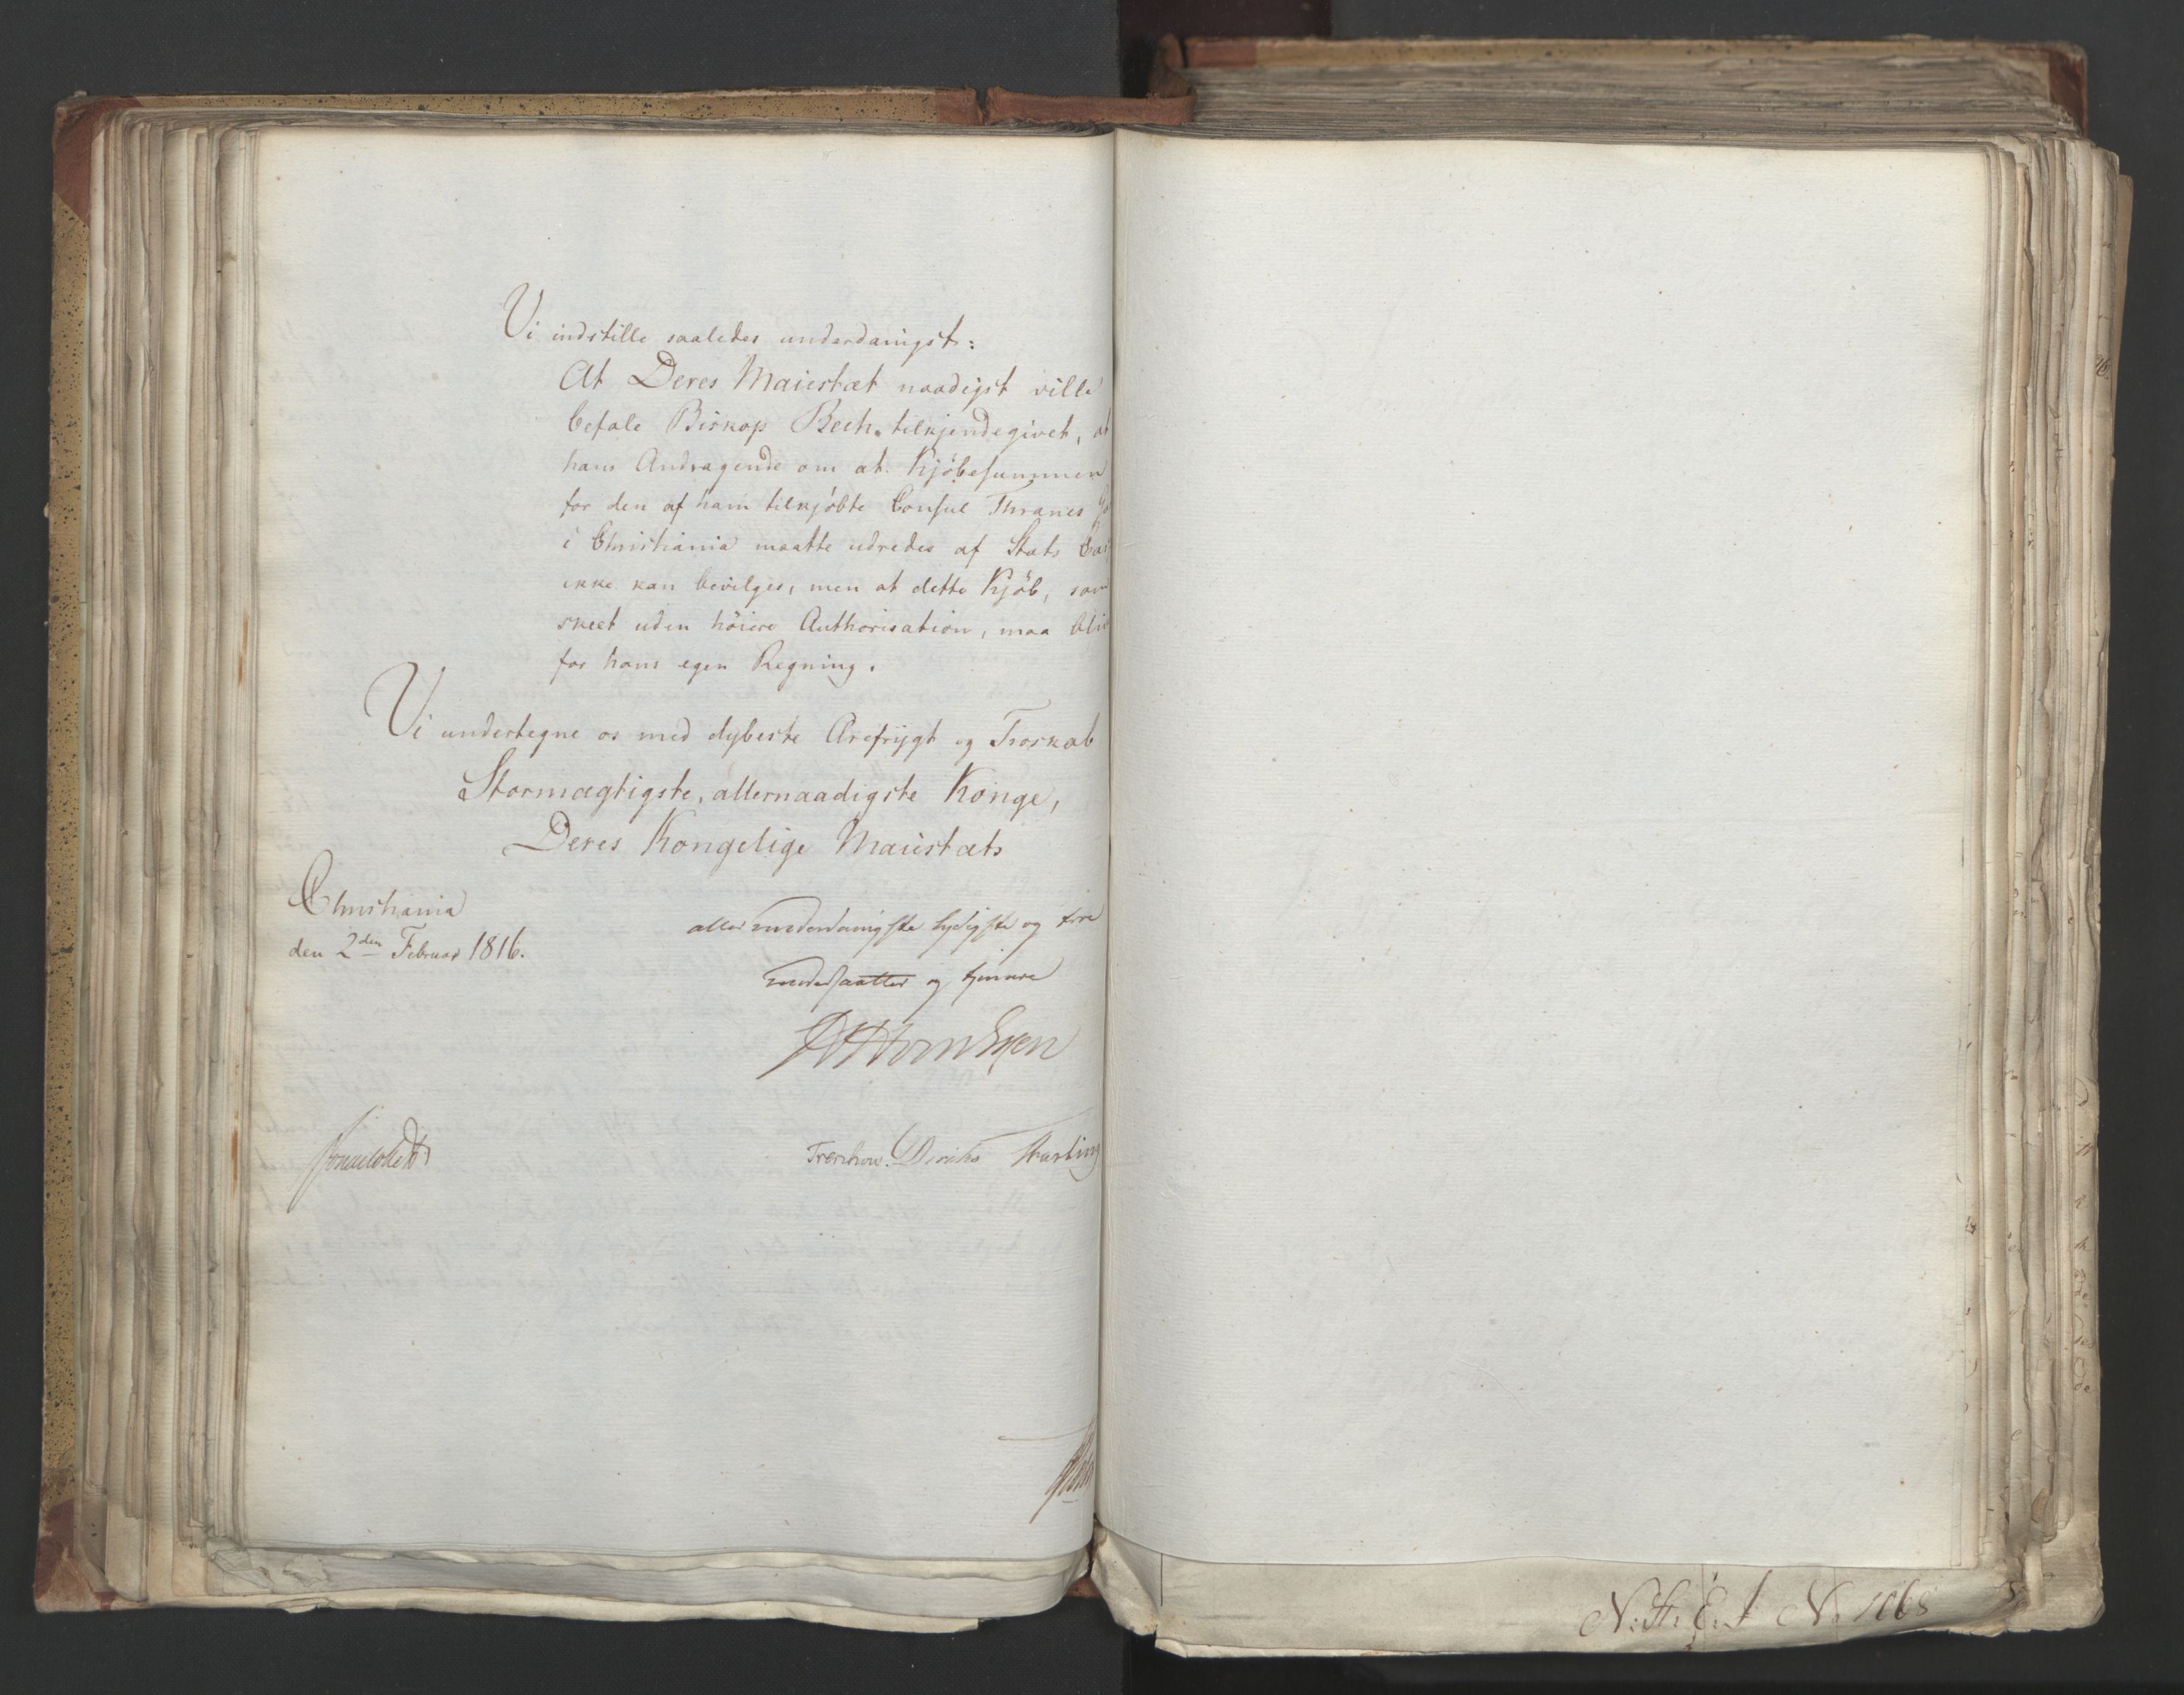 Vi indstille saaledes underdanigst:
At Deres Maiestæt naadigst ville
befale Biskop Bech tilkjendegivet, at
hans Andragende om at Kjöbesummen
for den af ham tilkjöbte Consul Thranes
i Christiania maatte udredes af Stats Cas
ikke kan bevilges, men at dette Kjöb, som
skeet uden höiere Authorisation, maa bliv
for hans egen Regning.
Vi undertegne os med dybeste Ærefrygt og Troskab
Stormægtigste, allernaadigste Konge,
Deres Kongelige Maiestæts
Christiania
den 2den Februar 1816.
allerunderdanigste lydigste og troe
undersaatter og tjenere
Treschow. Diriks Krasting
N: St: E: J No 1068